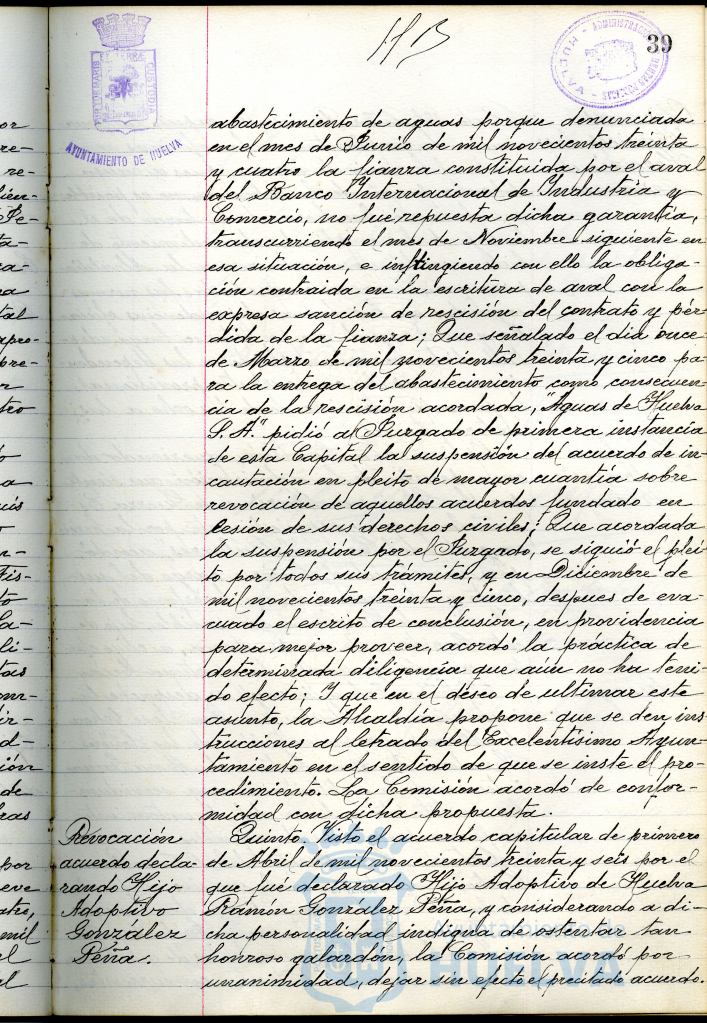 39
AYUNTAMIENTO DE HUELVA
ADMINISTRACION
HUELVA
abastecimiento de aguas porque denunciada
en el mes de Junio de mil novecientos treinta
y cuatro la fianza constituida por el aval
del Banco Internacional de Industria y
Comercio, no fué repuesta dicha garantía,
transcurriendo el mes de Noviembre siguiente en
esa situación, e infringiendo con ello la obliga-
ción contraida en la escritura de aval con la
expresa sanción de rescisión del contrato y pér-
dida de la fianza; Que señalado el dia once
de Marzo de mil novecientos treinta y cinco pa-
ra la entrega del abastecimiento como consecuen-
cia de la rescisión acordada, "Aguas de Huelva
S. A." pidió al Juzgado de primera instancia
de esta Capital la suspensión del acuerdo de in-
cautación en pleito de mayor cuantía sobre
revocación de aquellos acuerdos fundado en
lesión de sus derechos civiles; Que acordada
la suspensión por el Juzgado, se siguió el plei-
to por todos sus trámites, y en Diciembre de
mil novecientos treinta y cinco, despues de eva-
cuado el escrito de conclusión, en providencia
para mejor proveer, acordó la práctica de
determinada diligencia que aún no ha teni-
do efecto; Y que en el deseo de ultimar este
asunto, la Alcaldía propone que se den ins-
trucciones al letrado del Excelentísimo Ayun-
tamiento en el sentido de que se inste el pro-
cedimiento. La Comisión acordó de confor-
midad con dicha propuesta.
Revocación
acuerdo decla-
rando Hijo
Adoptivo
González
Peña.
Quinto. Visto el acuerdo capitular de primero
de Abril de mil novecientos treinta y seis por el
que fué declarado Hijo Adoptivo de Huelva
Ramón González Peña, y considerando a di-
cha personalidad indigna de ostentar tan
honroso galardón, la Comisión acordó por
unanimidad, dejar sin efecto el precitado acuerdo.
HUELVA